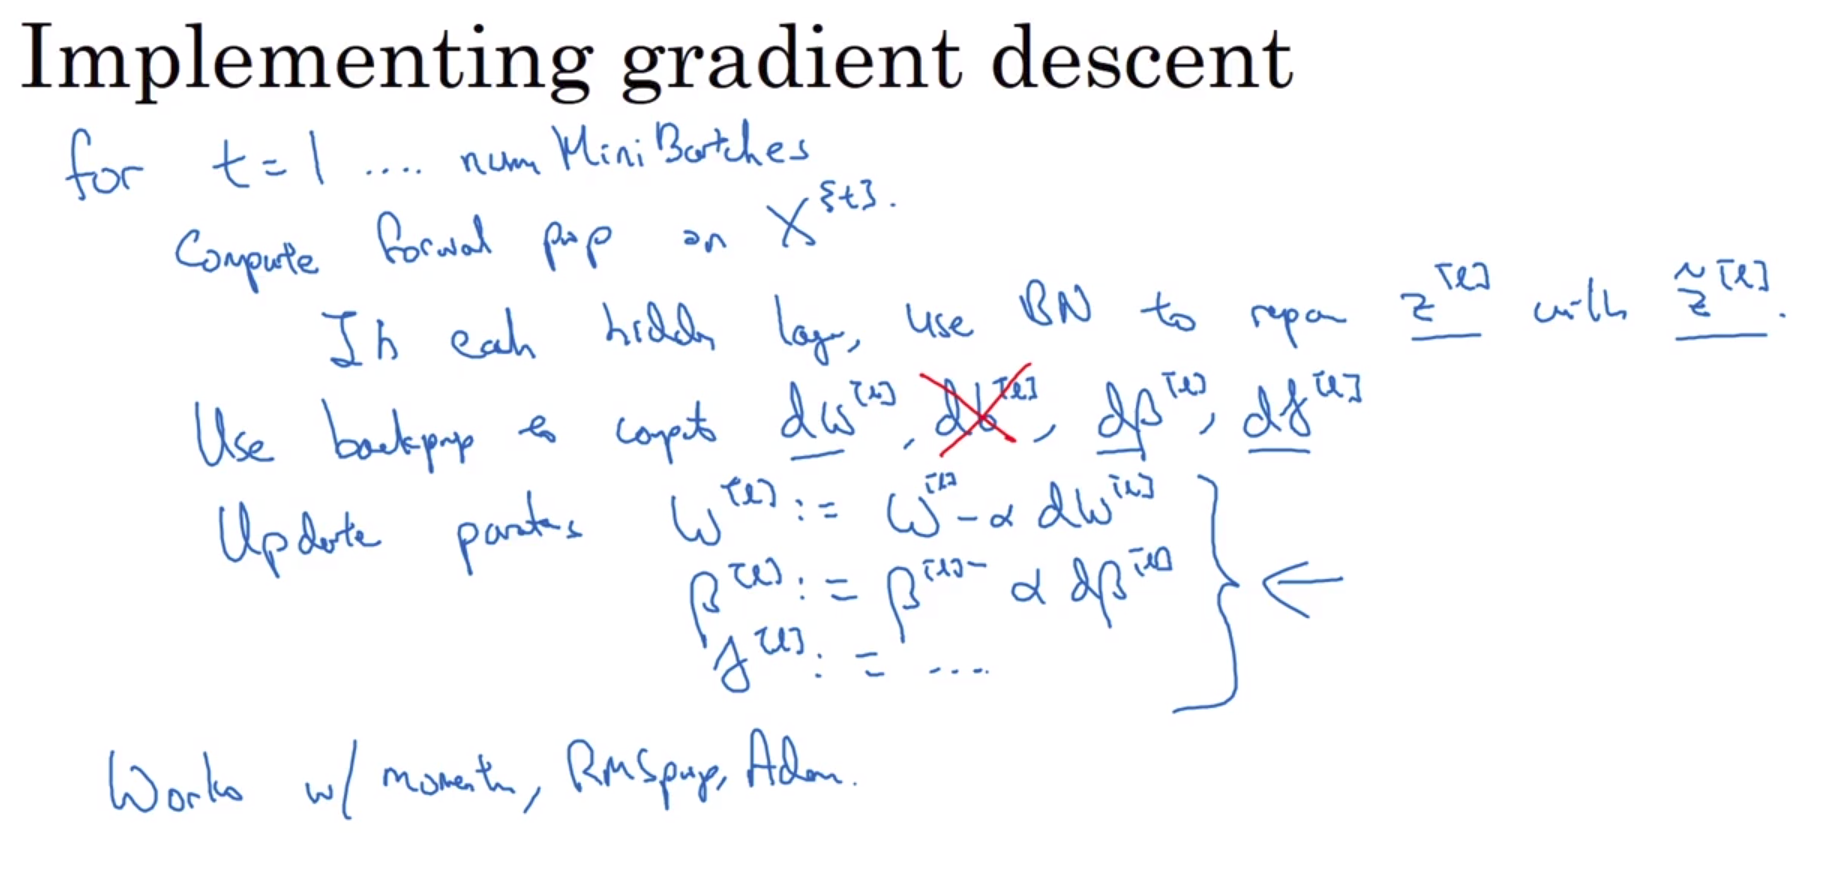 Implementing gradient descent
for t = 1 .... num Mini Batches
Compute forwad prop on X^{t}.
In each hidden layer, use BN to repar z^[l] with z̃^[l].
Use backprop to compute dw^[l], db^[l], dβ^[l], dγ^[l]
Update parameters w^[l] := w^[l] - α dw^[l]
β^[l] := β^[l] - α dβ^[l]
γ^[l] := ....
Works w/ momentum, RMSprop, Adam.